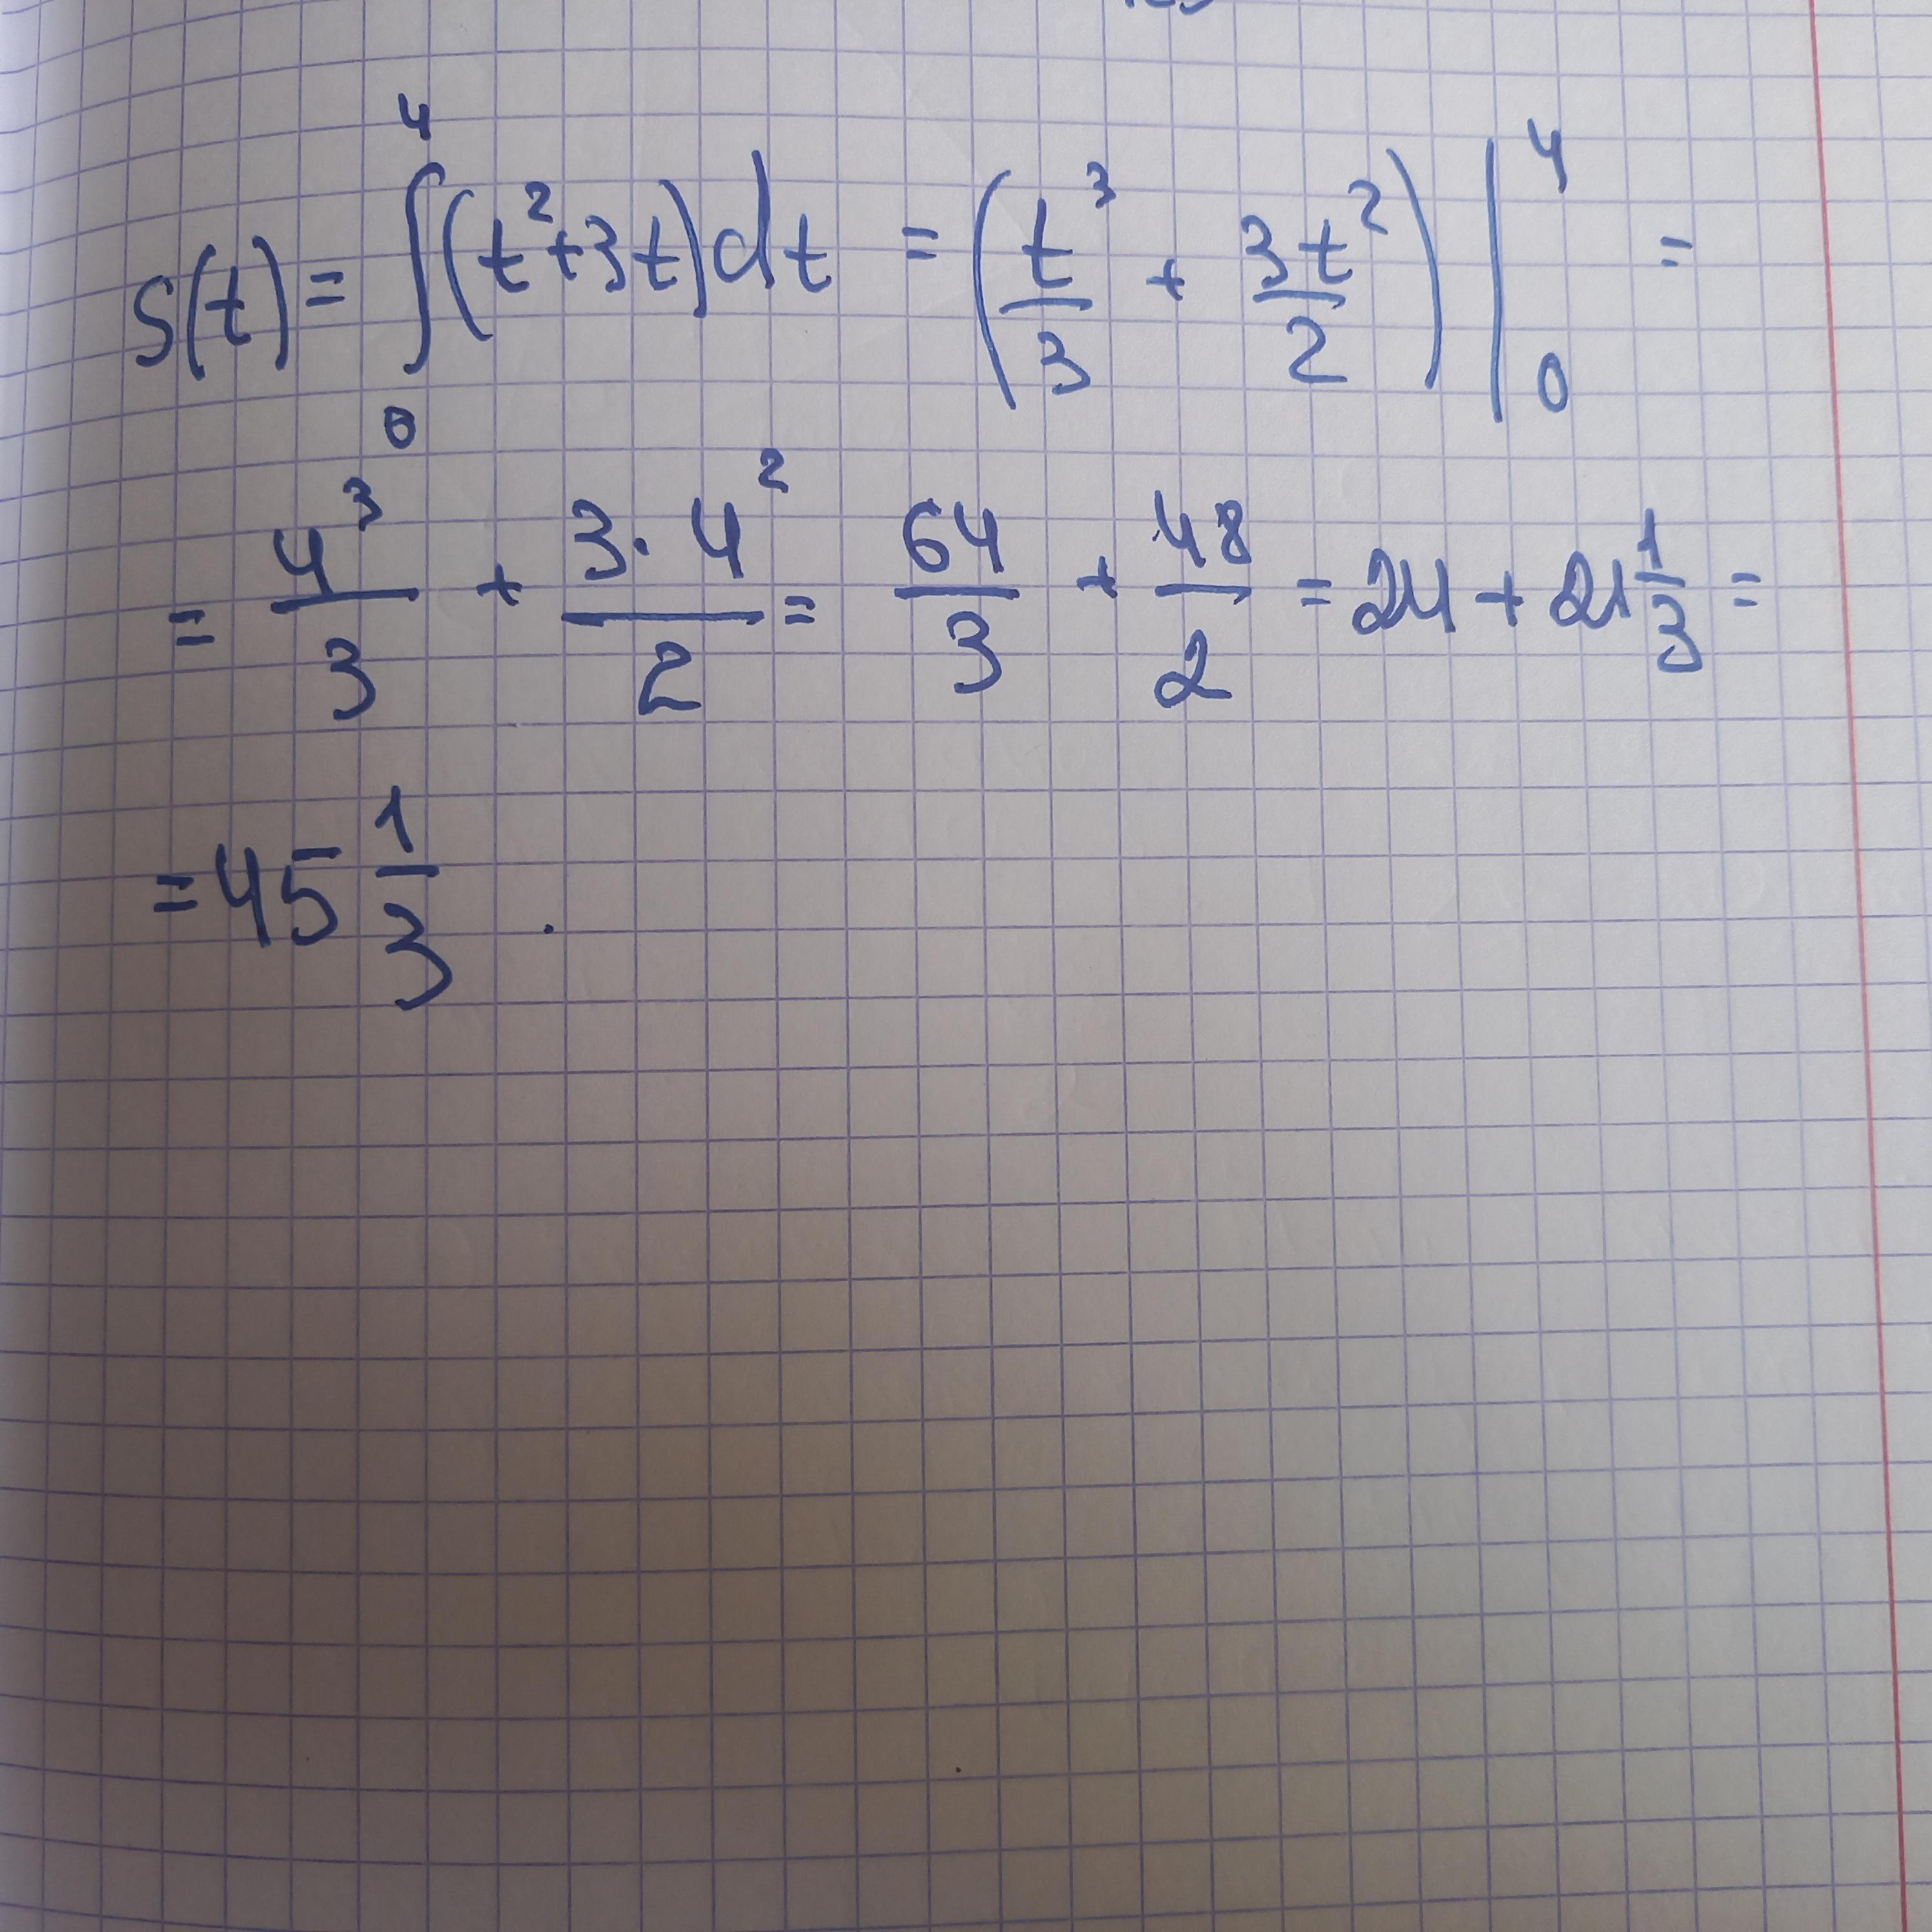 S(t) = ∫₀⁴ (t² + 3t) dt = (t³/3 + 3t²/2) |₀⁴ =
= 4³/3 + 3·4²/2 = 64/3 + 48/2 = 24 + 21 1/3 =
= 45 1/3 .